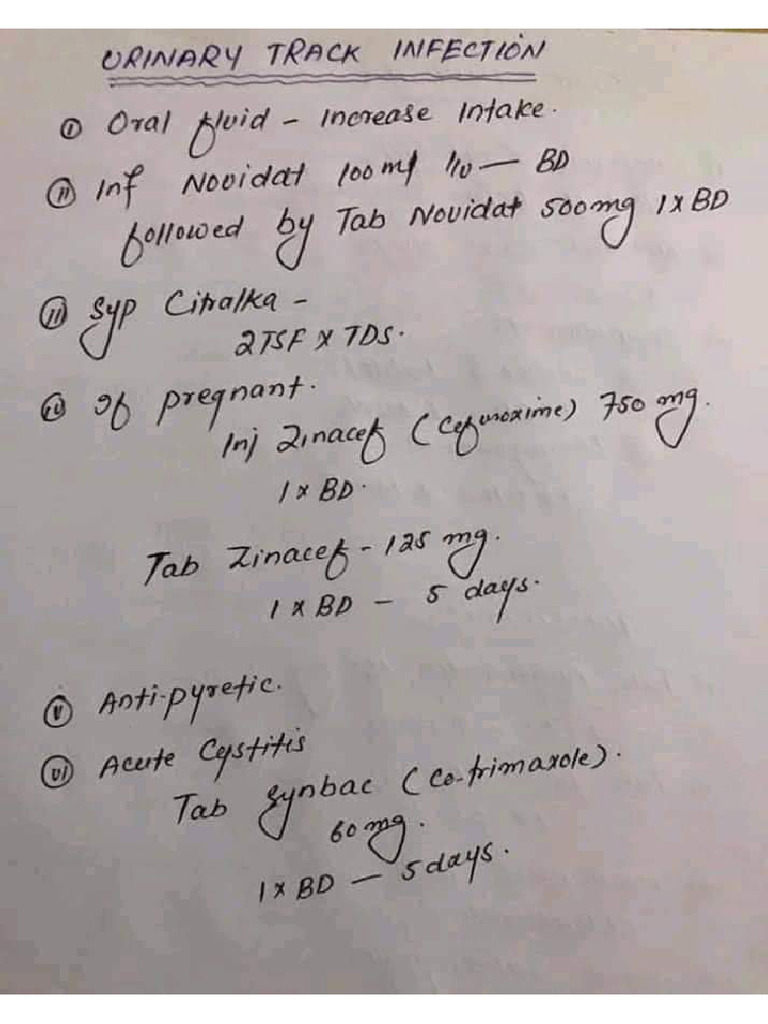 URINARY TRACK INFECTION
(i) Oral fluid - Increase Intake.
(ii) Inf Novidat 100ml I/V — BD
followed by Tab Novidat 500mg 1 x BD
(iii) Syp Citralka -
2TSF x TDS.
(iv) If pregnant.
Inj Zinacef (Cefuroxime) 750 mg.
1 x BD.
Tab Zinacef - 125 mg.
1 x BD - 5 days.
(v) Anti-pyretic.
(vi) Acute Cystitis
Tab Synbac (Co-trimaxole).
60 mg.
1 x BD — 5 days.